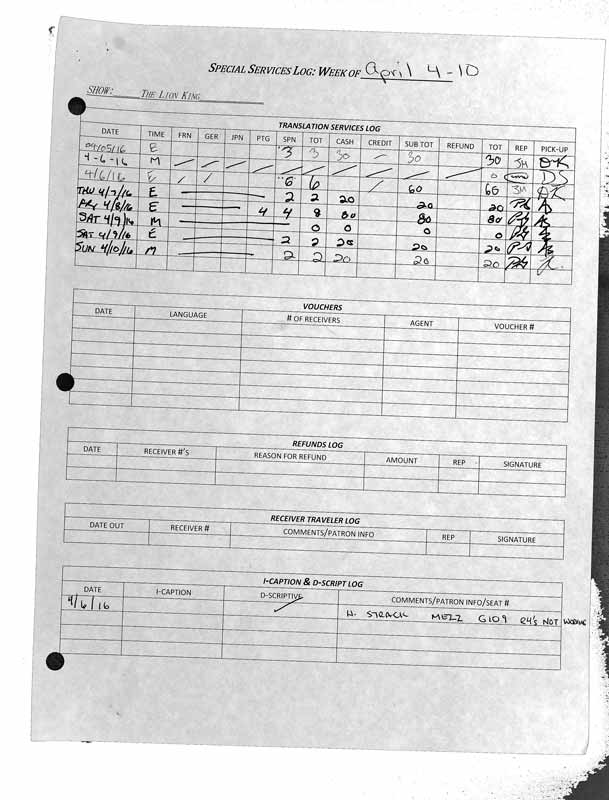 SPECIAL SERVICES LOG: WEEK OF April 4-10
SHOW: THE LION KING
TRANSLATION SERVICES LOG
DATE TIME FRN GER JPN PTG SPN TOT CASH CREDIT SUB TOT REFUND TOT REP PICK-UP
04/05/16 E 3 3 30 / 30 30 JH OK
4-6-16 M / / / / / / / / / / 0 DS
4/6/16 E / / 6 6 / 60 60 JH OK
THU 4/7/16 E 2 2 20 20 20
FRI 4/8/16 E 4 4 8 80 80 80
SAT 4/9/16 M 0 0 0 0
SAT 4/9/16 E 2 2 20 20 20
SUN 4/10/16 M 2 2 20 20 20
VOUCHERS
DATE LANGUAGE # OF RECEIVERS AGENT VOUCHER #
REFUNDS LOG
DATE RECEIVER #'S REASON FOR REFUND AMOUNT REP SIGNATURE
RECEIVER TRAVELER LOG
DATE OUT RECEIVER # COMMENTS/PATRON INFO REP SIGNATURE
I-CAPTION & D-SCRIPT LOG
DATE I-CAPTION D-SCRIPTIVE COMMENTS/PATRON INFO/SEAT #
4/6/16 ✓ H. STRACK MEZZ G109 R4's NOT WORKING